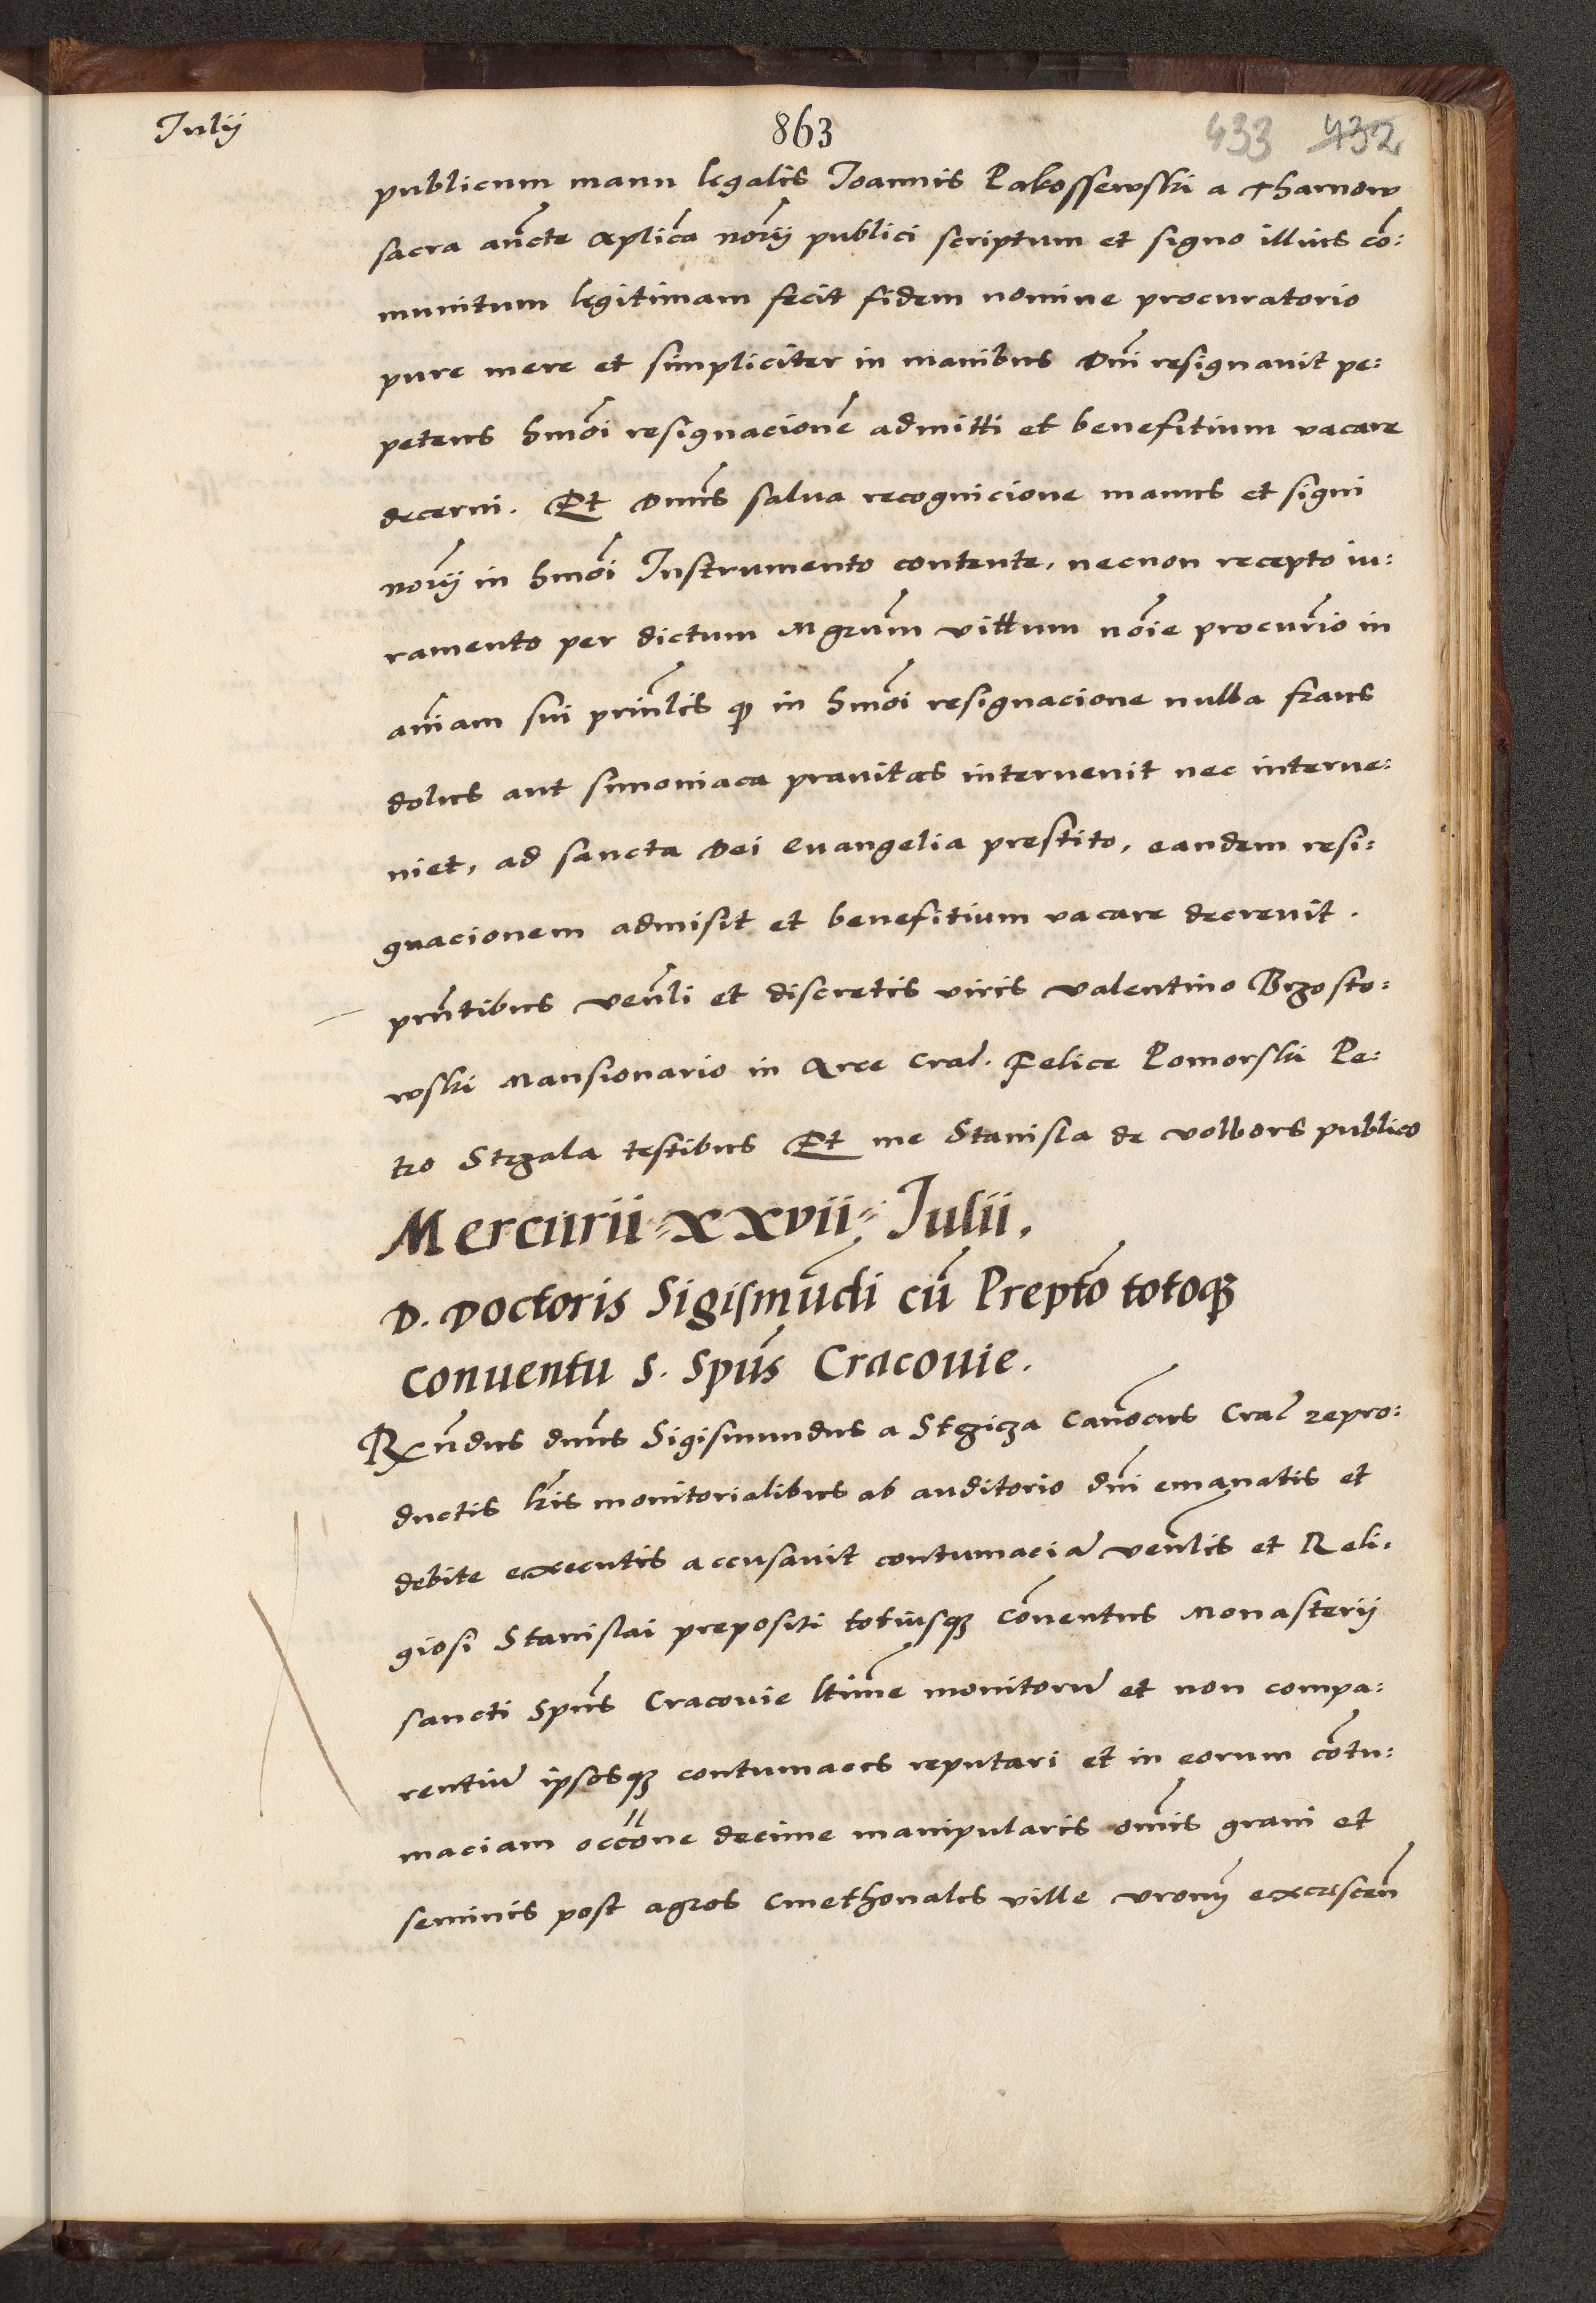 Iulij
863
433 432
publicum manu legalis Ioannis Pakossewski a Tharnow
sacra aucte Aplica norij publici scriptum et signo illius co:
munitum legitimam fecit fidem nomine procuratorio
pure mere et simpliciter in manibus Dni resignauit pe:
petens hmoi resignacione admitti et benefitium vacare
decerni. Et Dnus salua recognicione manus et signi
norij in hmoi Instrumento contente, necnon recepto iu:
ramento per dictum Mgrum vittum noie procurio in
aniam sui prinlis q in hmoi resignacione nulla fraus
dolus aut simoniaca prauitas interuenit nec interue:
niet, ad sancta Dei Euangelia prestito, eandem resi:
gnacionem admisit et benefitium vacare decreuit.
pntibus venli et discretis viris Valentino Brzosto:
wski Mansionario in Arce Crac. Felice Pomorski Pe:
tro Strzala testibus Et me Stanisla de Volbors publico
Mercurii xxvii Iulii.
D. Doctoris Sigismudi cu Prepto totoq
conuentu S. Spus Cracouie.
Rndus dnus Sigismundus a Stezicza Canocus Crac repro:
ductis lris monitorialibus ab auditorio dni emanatis et
debite executis accusauit contumacia venlis et Reli:
giosi Stanislai prepositi totiusq Conuentus Monasterij
sancti Spus Cracouie ltime monitoru et non compa:
rentiu ipsosq contumaces reputari et in eorum contu:
maciam occone decime manipularis omis grani et
seminis post agros Cmethonales ville Vrony excrescen